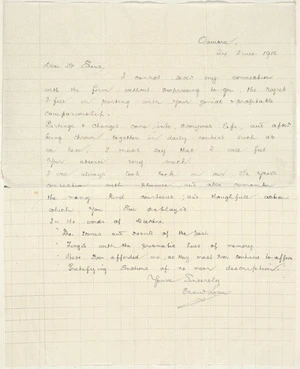 Oamaru,
2nd June 1915
Dear Mr
I cannot sever my connection
with the firm without expressing to you the regret
I feel in parting with your genial & hospitable
companionship.
Partings & changes come into everyones life, but after
being thrown together in daily contact such as
we have, I must say that I will feel
your absence very much.
I will always look back on our years
connection with pleasure and also remember
the many kind courtesies, and thoughtful
which you have displayed
In the words of Dickens
The comes out records of the past
Tinged with the prismatic hues of memory
have afforded me, as they must ever continue to afford
Gratifying of no mean description.
Yours Sincerely